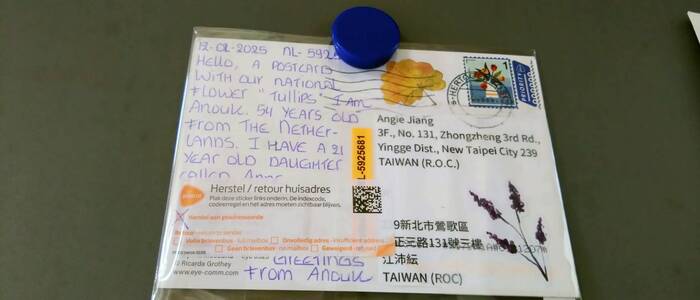 12-02-2025 NL-592
HELLO, A POSTCARD
WITH OUR NATIONAL
FLOWER "TULLIPS" I AM
ANOUK. 54 YEARS OLD
FROM THE NETHER-
LANDS. I HAVE A 21
YEAR OLD DAUGHTER
called
Herstel / retour huisadres
Plak deze sticker links onderin. De indexcode,
codeerregel en het adres moeten zichtbaar blijven.
Retour
Volle brievenbus - full mailbox
Onvolledig adres - insufficient address
Geen brievenbus - no mailbox
Geweigerd - refused
GREETINGS
© Ricarda Grothey
www.eye-comm.com
FROM ANOUK
L-5925681
PRIORITY
Angie Jiang
3F., No. 131, Zhongzheng 3rd Rd.,
Yingge Dist., New Taipei City 239
TAIWAN (R.O.C.)
9新北市鶯歌區
正三路131號三樓
江沛紜
TAIWAN (ROC)